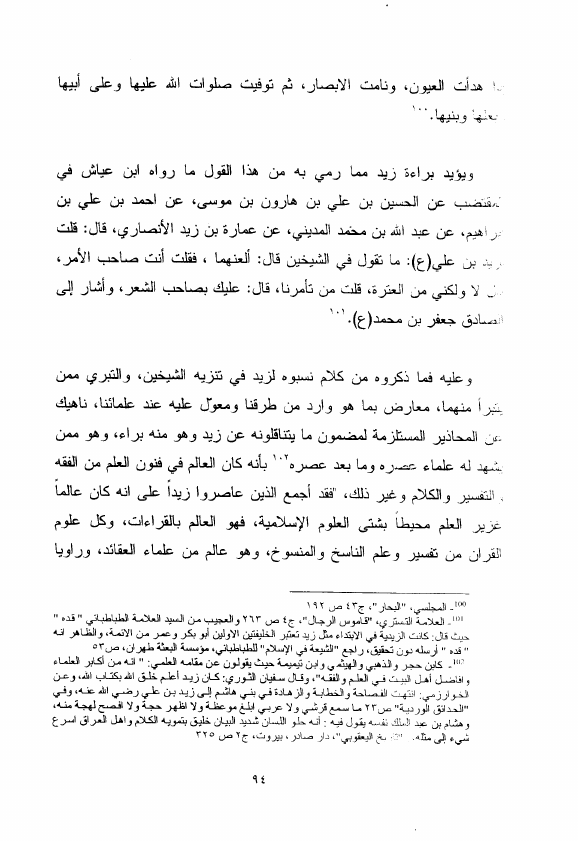 هدأت العيون، ونامت الابصار، ثم توفيت صلوات الله عليها وعلى أبيها
وبنيها.١٠٠
ويؤيد براءة زيد مما رمي به من هذا القول ما رواه ابن عياش في
عن الحسين بن علي بن هارون بن موسى، عن احمد بن علي بن
عن عبد الله بن محمد المديني، عن عمارة بن زيد الأنصاري، قال: قلت
بن علي(ع): ما تقول في الشيخين قال: ألعنهما ، فقلت أنت صاحب الأمر،
لا ولكني من العترة، قلت من تأمرنا، قال: عليك بصاحب الشعر، وأشار إلى
الصادق جعفر بن محمد(ع).١٠١
وعليه فما ذكروه من كلام نسبوه لزيد في تنزيه الشيخين، والتبري ممن
يتبرأ منهما، معارض بما هو وارد من طرقنا ومعوّل عليه عند علمائنا، ناهيك
عن المحاذير المستلزمة لمضمون ما يتناقلونه عن زيد وهو منه براء، وهو ممن
يشهد له علماء عصره وما بعد عصره١٠٢ بأنه كان العالم في فنون العلم من الفقه
التفسير والكلام وغير ذلك، "فقد أجمع الذين عاصروا زيداً على انه كان عالماً
غزير العلم محيطاً بشتى العلوم الإسلامية، فهو العالم بالقراءات، وكل علوم
القران من تفسير وعلم الناسخ والمنسوخ، وهو عالم من علماء العقائد، وراويا
١٠٠- المجلسي، "البحار"، ج٤٣ ص ١٩٢
١٠١- العلامة التستري، "قاموس الرجال"، ج٤ ص ٢٦٣ والعجيب من السيد العلامة الطباطبائي " قده "
حيث قال: كانت الزيدية في الابتداء مثل زيد تعتبر الخليفتين الاولين أبو بكر وعمر من الائمة، والظاهر انه
" قده " أرسله دون تحقيق، راجع "الشيعة في الإسلام" للطباطبائي، مؤسسة البعثة طهران، ص٥٣
١٠٢- كابن حجر والذهبي والهيثمي وابن تيميمة حيث يقولون عن مقامه العلمي: "انه من أكابر العلماء
وافاضل أهل البيت في العلم والفقه"، وقال سفيان الثوري: كان زيد أعلم خلق الله بكتاب الله، وعن
الخوارزمي: انتهت الفصاحة والخطابة والزهادة في بني هاشم إلى زيد بن علي رضي الله عنه، وفي
"الحدائق الوردية" ص٢٣ ما سمع قرشي ولا عربي أبلغ موعظة ولا اظهر حجة ولا افصح لهجة منه،
وهشام بن عبد الملك نفسه يقول فيه : أنه حلو اللسان شديد البيان خليق بتمويه الكلام واهل العراق اسرع
شيء إلى مثله. اليعقوبي"، دار صادر، بيروت، ج٢ ص ٣٢٥
٩٤